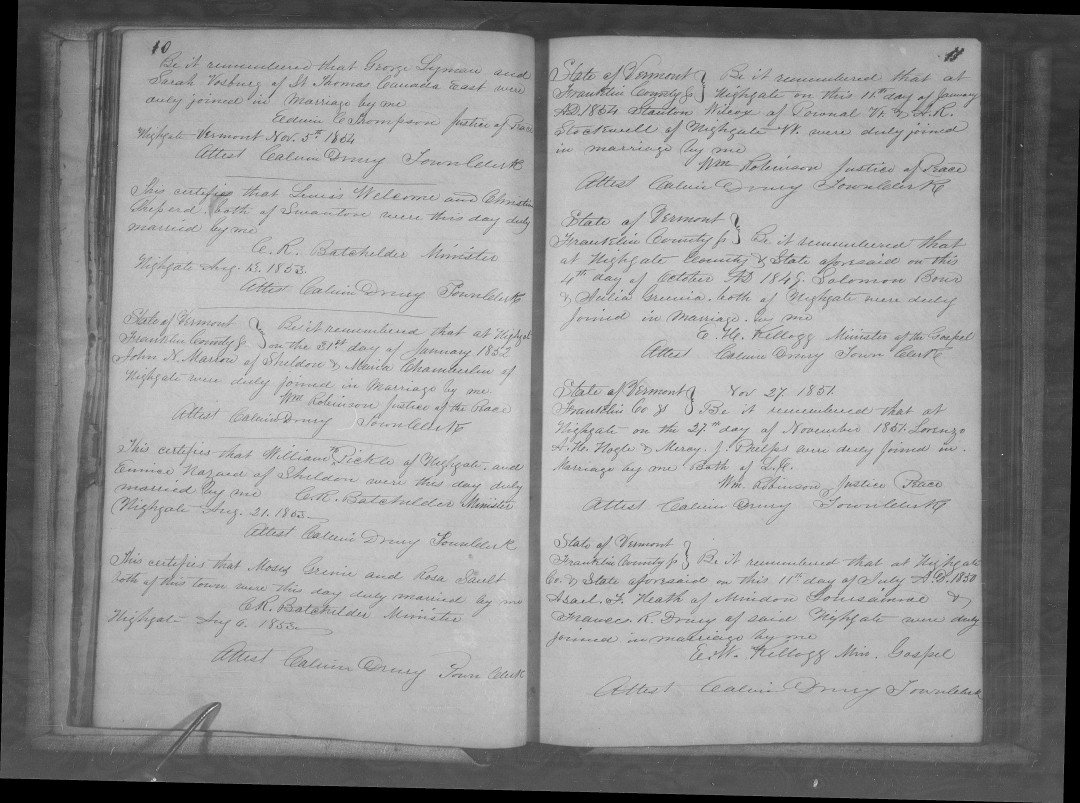 10
Be it remembered that George Lyman and
Sarah Vosburg of St Thomas Canada East were
duly joined in Marriage by me
Edwin C Thompson Justice of Peace
Highgate Vermont Nov. 5th 1854
Attest Calvin Drury Town Clerk
This certifies that Lewis Welcome and Christen
Sheperd both of Swanton were this day duly
married by me
C. R. Batchelder Minister
Highgate Aug. 13. 1853.
Attest Calvin Drury Town Clerk
State of Vermont } Be it remembered that at Highgate
Franklin County ss } on the 31st day of January 1852
John N. Marrow of Sheldon & Maria Chamberlin of
Highgate were duly joined in Marriage by me.
Wm Robinson Justice of the Peace
Attest Calvin Drury Town Clerk
This certifies that William Tickle of Highgate. and
Eunice Hazard of Sheldon were this day duly
married by me C. R. Batchelder Minister
Highgate Aug. 21. 1853.
Attest Calvin Drury Town Clerk
This certifies that Moses and Rosa Sault
both of this town were this day duly married by me
C.R. Batchelder Minister
Highgate 6. 1853.
Attest Calvin Drury Town Clerk
11
State of Vermont } Be it remembered that at
Franklin County ss } Highgate on this 11th day of January
AD. 1854 Stanton Wilcox of Pownal Vt. & A. R.
Stockwell of Highgate Vt. were duly joined
in marriage by me
Wm Robinson Justice of Peace
Attest Calvin Drury Town Clerk
State of Vermont }
Franklin County ss } Be it remembered that
at Highgate County & State aforesaid on this
4th day of October AD 184 Solomon
& both of Highgate were duly
joined in marriage. by me
E. W. Kellogg Minister of the Gospel
Attest Calvin Drury Town Clerk
State of Vermont } Nov 27. 1851.
Franklin Co ss } Be it remembered that at
Highgate on the 27th day of November 1851. Lorenzo
A. H. Hogle & Mercy. J. Phelps were duly joined in
Marriage by me Both of
Wm. Robinson Justice Peace
Attest Calvin Drury Town Clerk
State of Vermont }
Franklin County ss } Be it remembered that at Highgate
Co. & State aforesaid on this 11th day of July A.D. 1850
Asael. F. Heath of Mindon Louisiana &
Frances. R. Drury of said Highgate were duly
joined in marriage by me
E. W. Kellogg Min. Gospel
Attest Calvin Drury Town Clerk